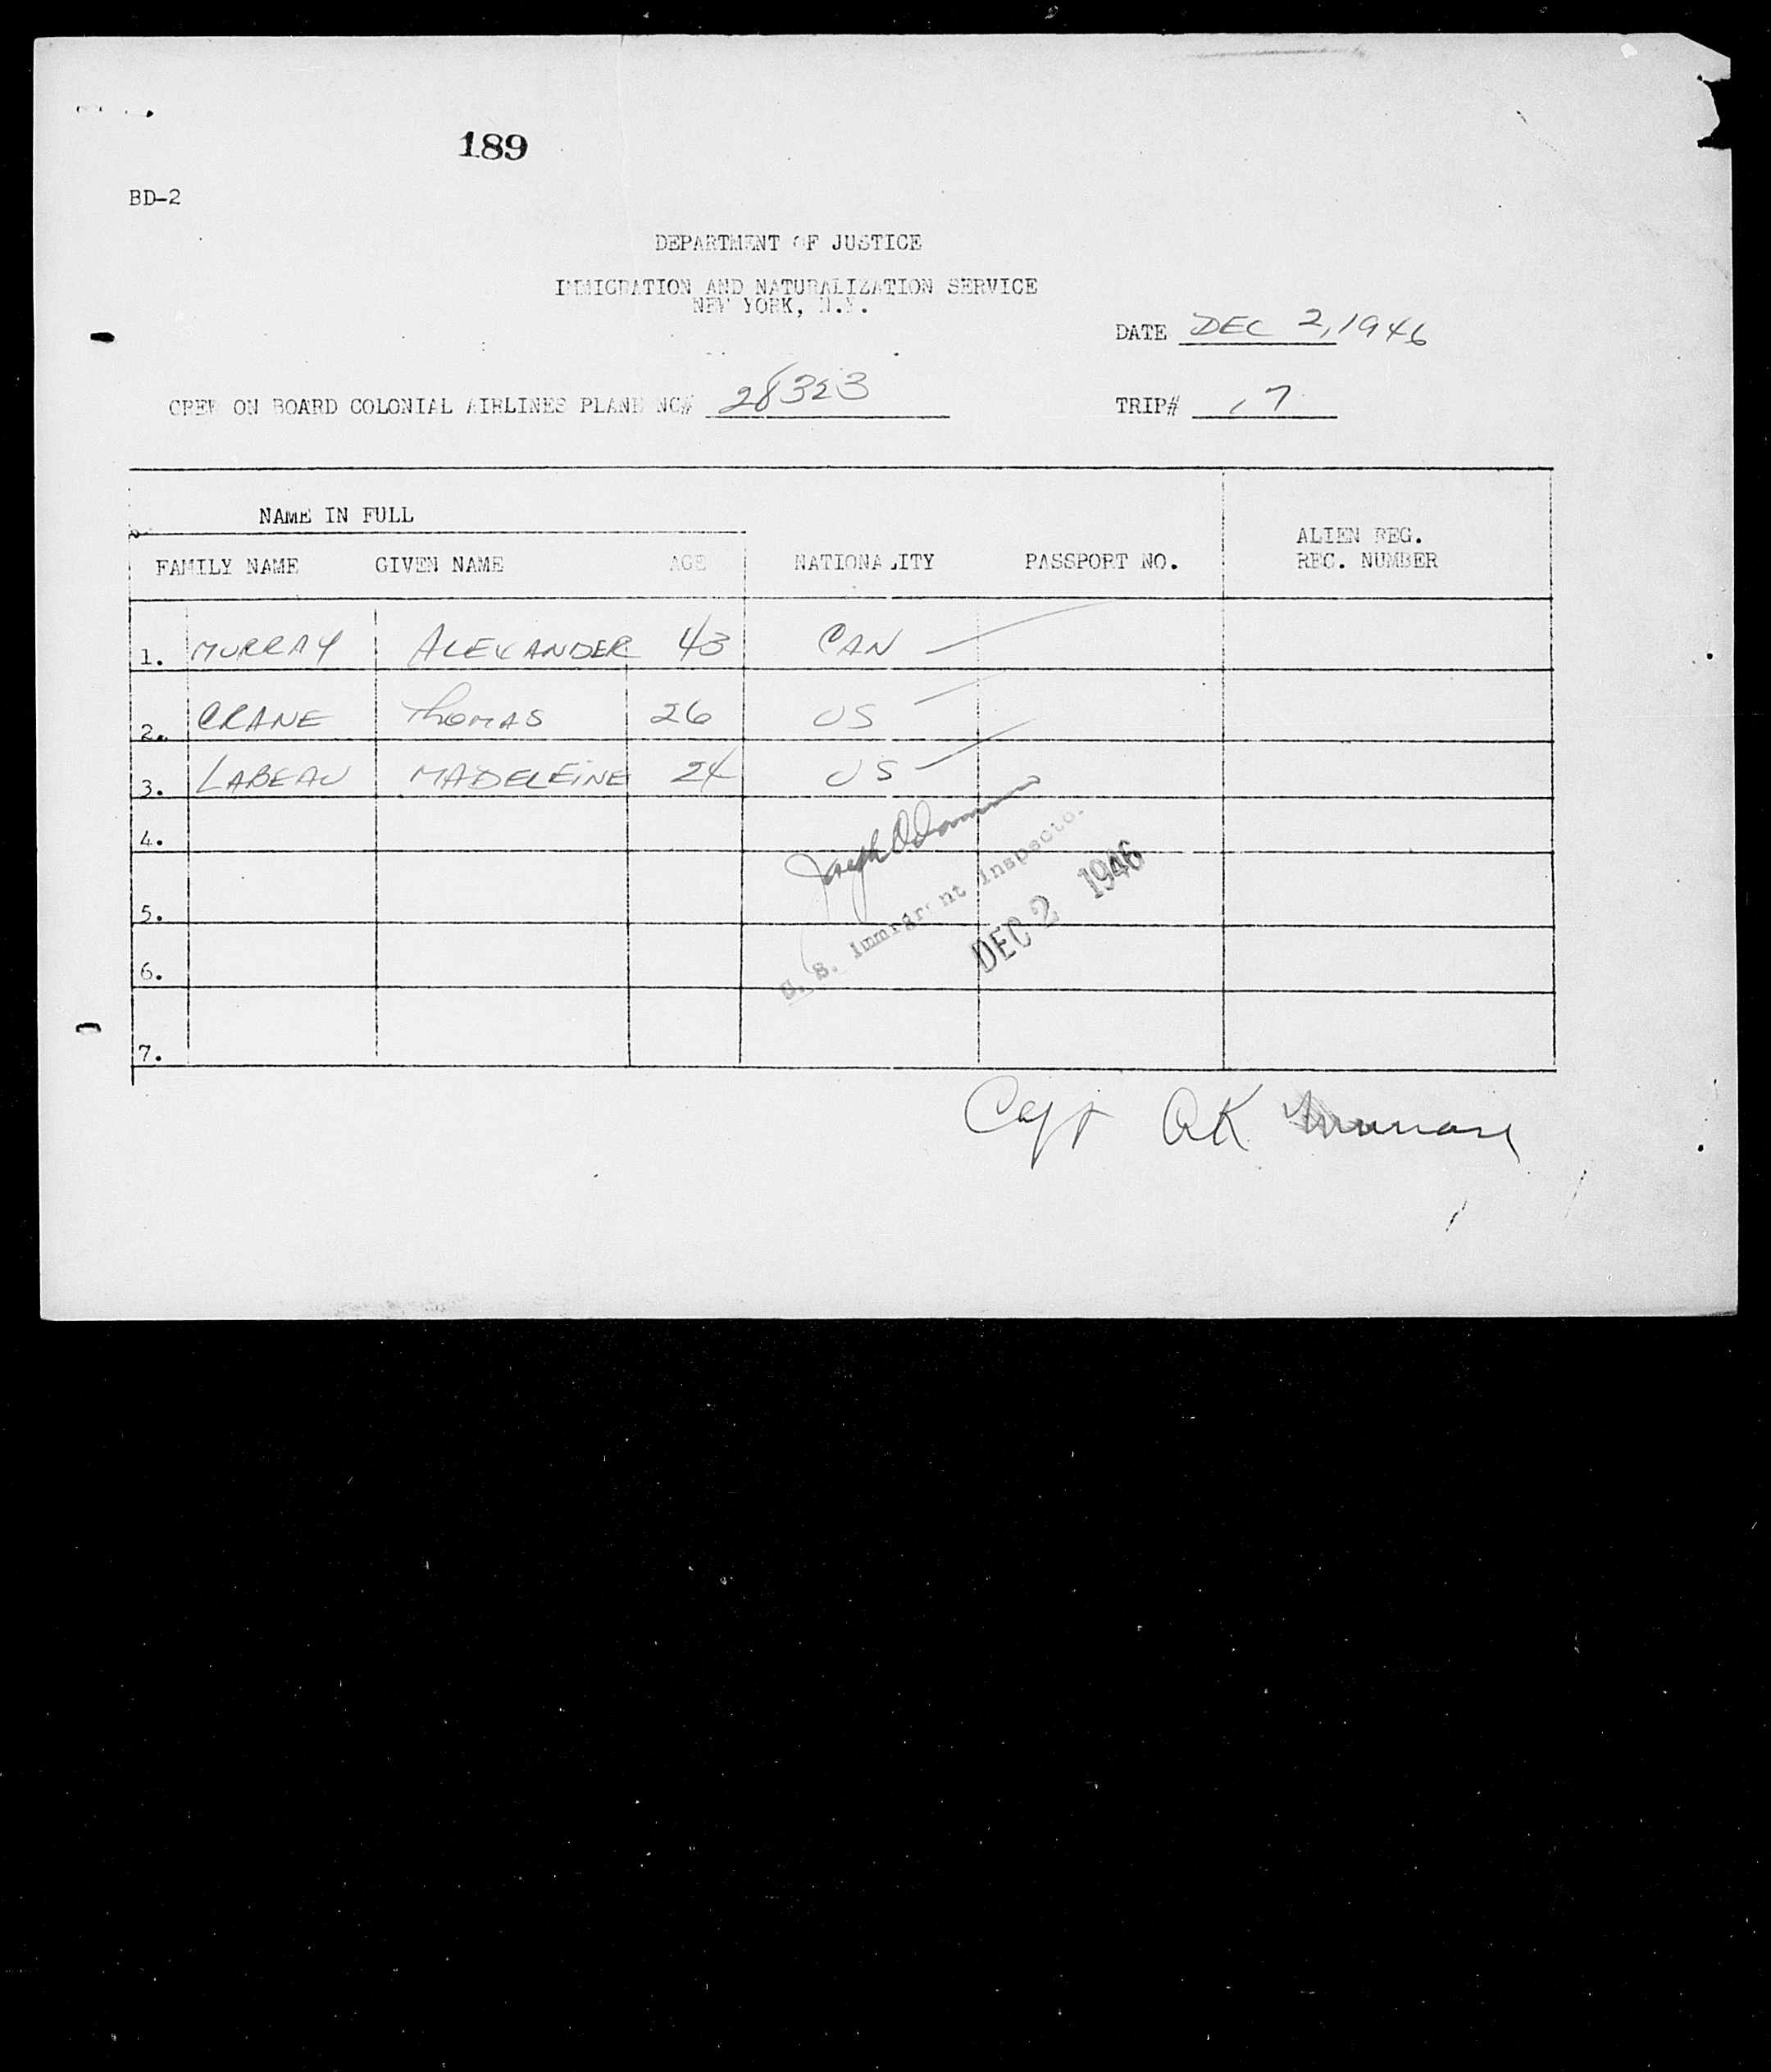 189
BD-2
DEPARTMENT OF JUSTICE
IMMIGRATION AND NATURALIZATION SERVICE
NEW YORK, N.Y.
DATE DEC 2, 1946
CREW ON BOARD COLONIAL AIRLINES PLANE NC# 28323
TRIP# 17
NAME IN FULL
FAMILY NAME GIVEN NAME AGE NATIONALITY PASSPORT NO. ALIEN REG.
REC. NUMBER
1. MURRAY ALEXANDER 43 CAN
2. CRANE THOMAS 26 US
3. LABEAU MADELEINE 24 US
4.
5.
6.
7.
Joseph
U. S. Immigrant Inspector
DEC 2 1946
Capt AK Murray